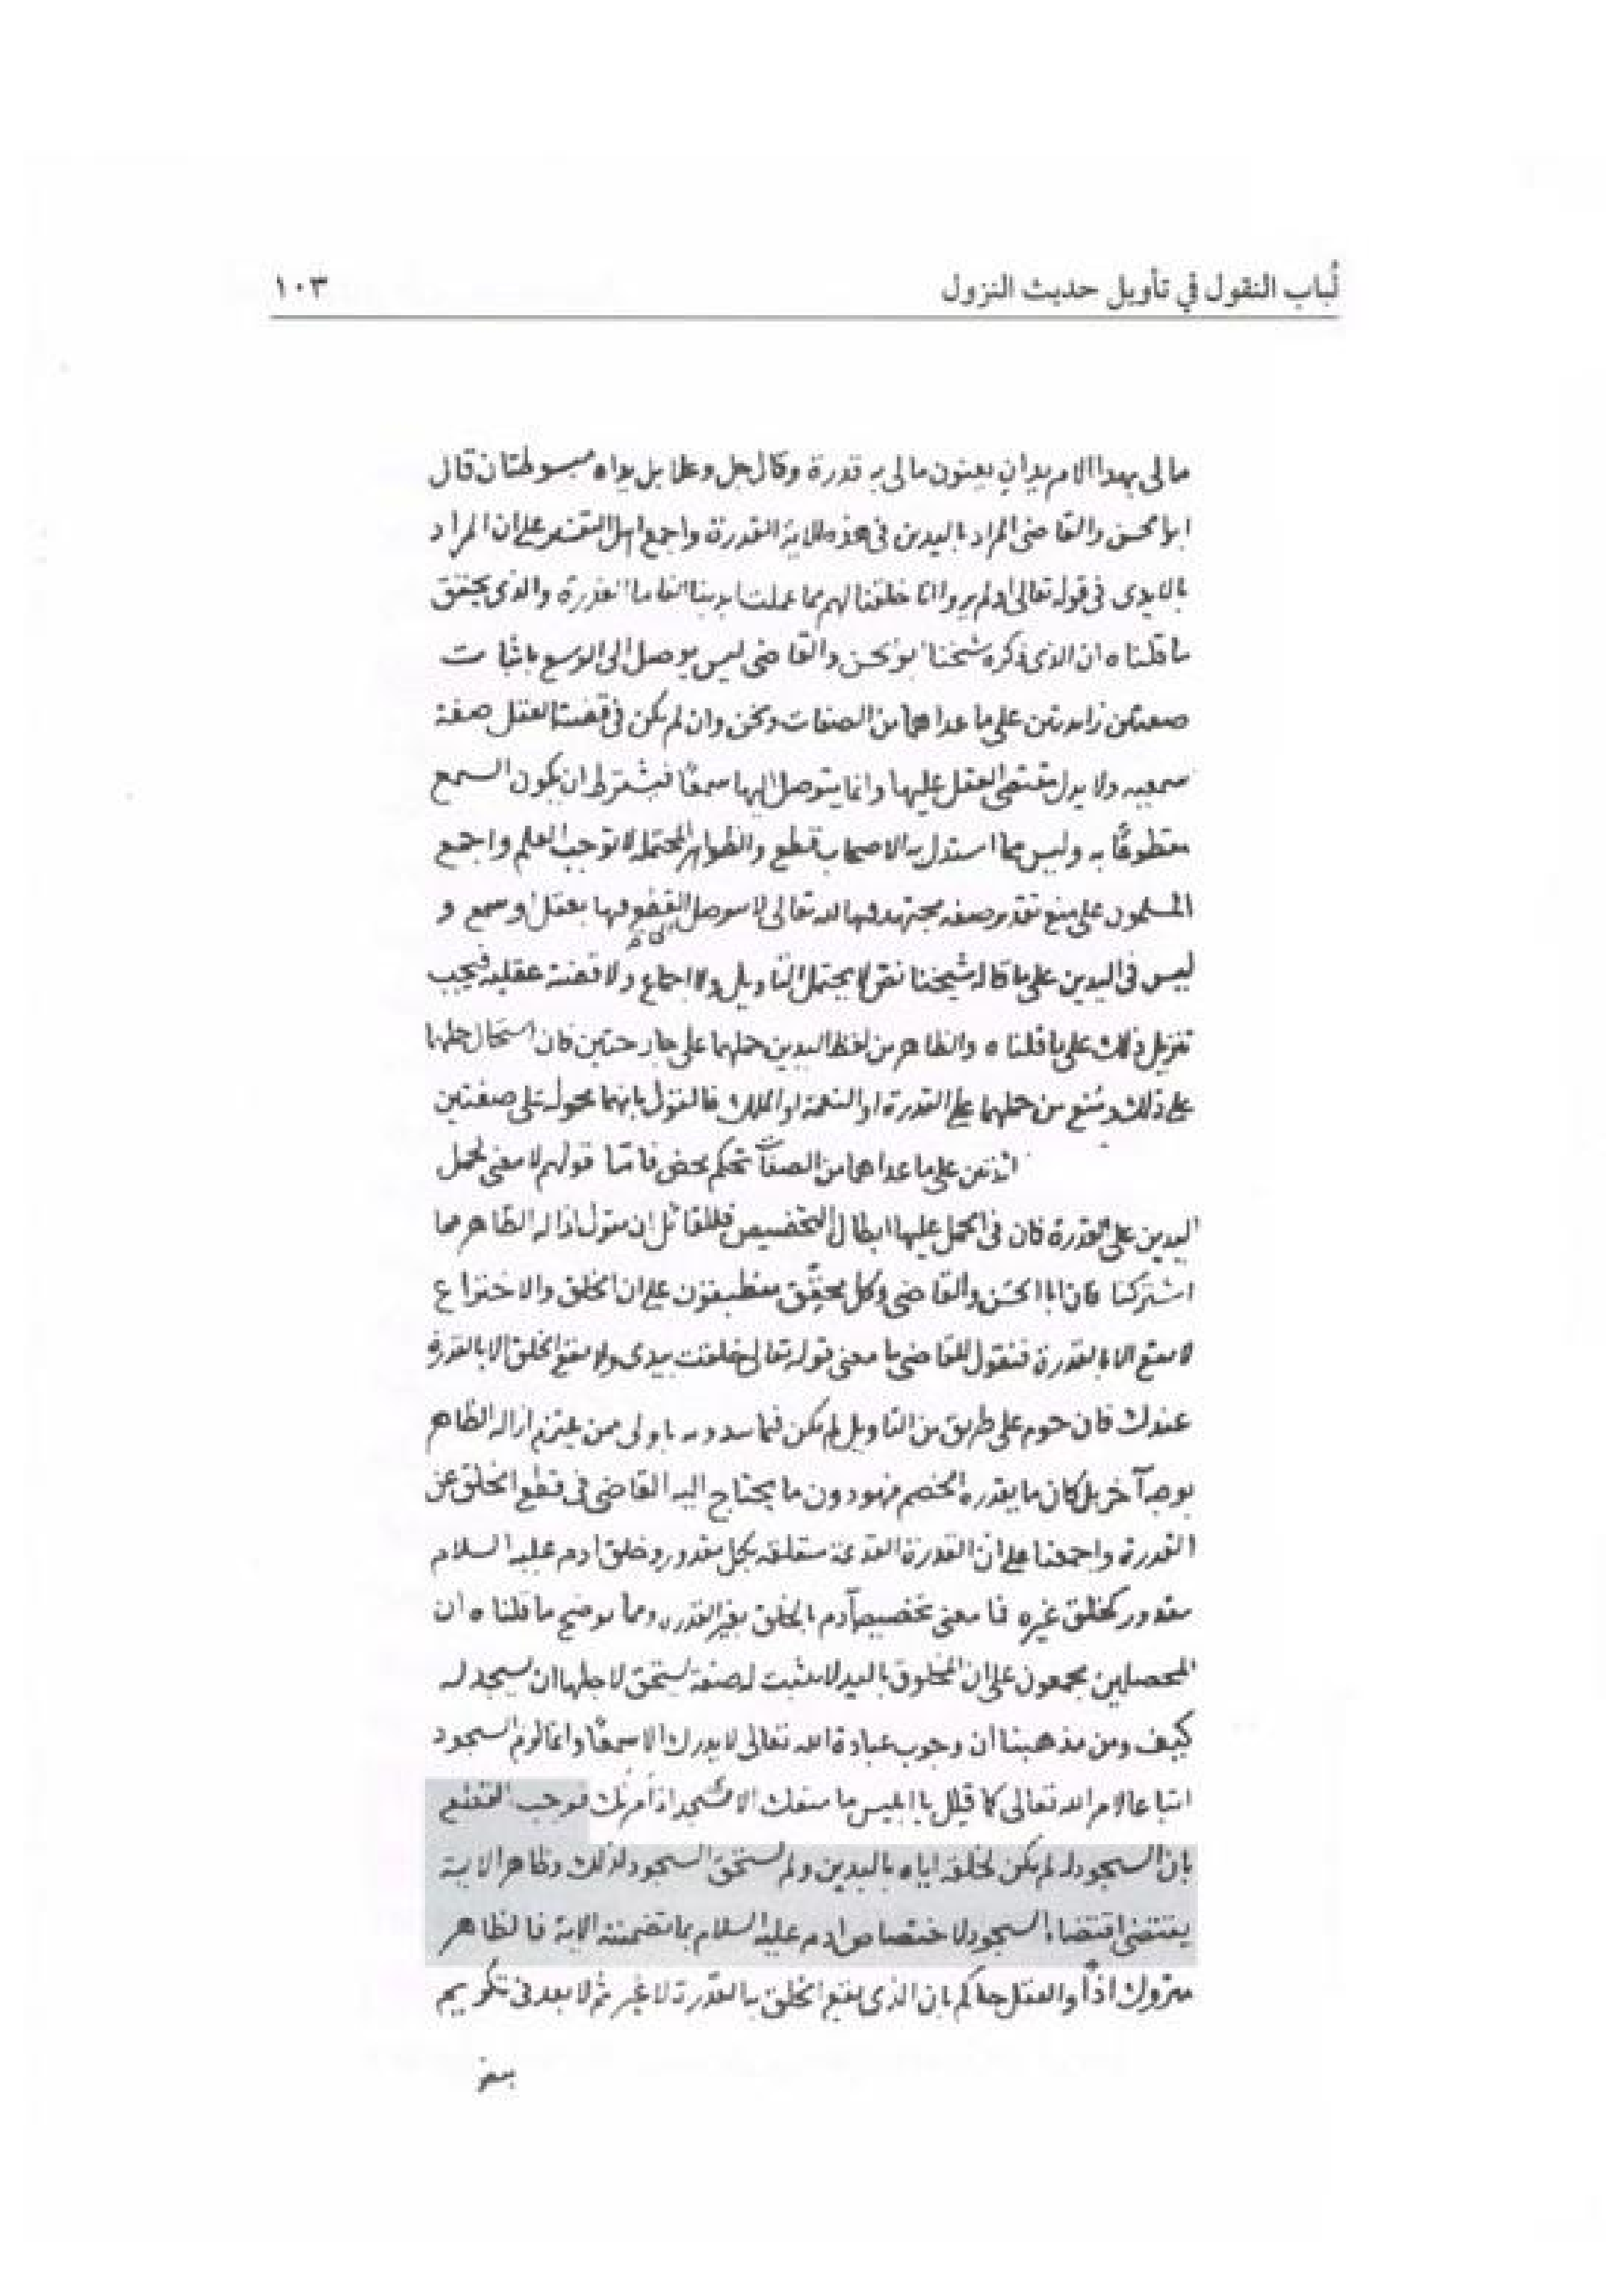 لُباب النقول في تأويل حديث النزول ١٠٣
مالى بهذا الامر يدان يعنون مالى به قدرة وقال جل وعلا بل يداه مبسوطتان قال
ابو الحسن والقاضى المراد باليدين فى هذه الاية القدرة واجمع اهل التفسير على ان المراد
بالايدى فى قوله تعالى اولم يروا انا خلقنا لهم مما عملت ايدينا انعاما القدرة والذى يحقق
ما قلناه ان الذى ذكره شيخنا ابو الحسن والقاضى ليس يوصل الى القطع باثبات
صفتين زايدتين على ما عداهما من الصفات ونحن وان لم يكن فى قضية العقل صفة
سمعيه ولا يدل مقتضى العقل عليها وانما يتوصل اليها سمعًا فيشترط ان يكون السمع
مقطوعًا به وليس مما استدل به الاصحاب قطع والظواهر المحتملة لا توجب العلم واجمع
المسلمون على منع تقدير صفه مجتهد فيها لله تعالى لا يتوصل القطع فيها بعقل او سمع و
ليس فى اليدين على ما قاله شيخنا نص لا يحتمل التاويل ولا اجماع ولا قضية عقلية فيجب
تنزيل ذلك على ما قلناه والظاهر من لفظ اليدين حملهما على جارحتين فان استحال حملهما
على ذلك ومُنع من حملهما على القدرة او النعمة او الملك فالقول بانهما محمولة على صفتين
زائدتين على ما عداهما من الصفات تحكم محض فامّا قولهم لا معنى لحمل
اليدين على القدرة فان فى الحمل عليها ابطال التخصيص فللقائل ان يقول ازاله الظاهر مما
اشتركنا فان ابا الحسن والقاضى وكل محقّق مطبقون على ان الخلق والاختراع
لا يقع الا بالقدرة فنقول للقاضى ما معنى قوله تعالى خلقت بيدى ولا يقع الخلق الا بالقدرة
عندك فان حوم على طريق من التاويل لم يكن فيما باولى ممن يلتزم ازاله الظاهر
بوجه آخر بل كان ما يقدره الخصم فهو دون ما يحتاج اليه القاضى فى قطع الخلق عن
القدرة واجمعنا على ان القدرة القديمة متعلقه بكل مقدور وخلق ادم عليه السلام
مقدور كخلق غيره فما معنى تخصيص آدم بالخلق بغير القدره ومما يوضح ما قلناه ان
المحصلين مجمعون على ان المخلوق باليد لا يثبت له صفة يستحق لاجلها ان يسجد له
كيف ومن مذهبنا ان وجوب عبادة الله تعالى لا يدرك الا سمعًا وانما لزم السجود
اتباعا لامر الله تعالى كما قيل يا ابليس ما منعك الا تسجد اذ أمرتك فوجب القطع
بان السجود له لم يكن لخلقه اياه باليدين ولم يستحق السجود لذلك وظاهر الاية
يقتضى اقتضاء السجود لاختصاص ادم عليه السلام بما تضمنته الاية فالظاهر
متروك اذًا والعقل حاكم بان الذى يقع الخلق به القدرة لا غير ثم لا بعد فى تكريم
بعض